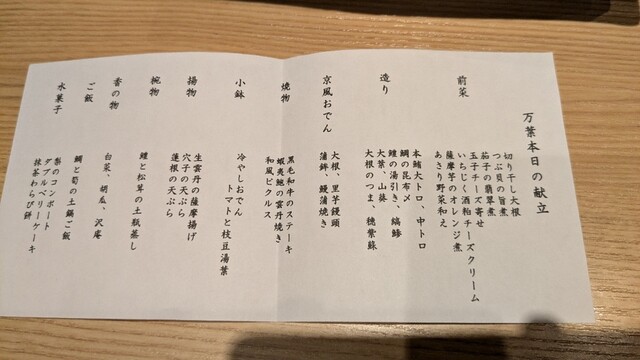 万葉本日の献立
前菜
切り干し大根
つぶ貝の旨煮
茄子の翡翠煮
玉子チーズ寄せ
いちじく酒粕チーズクリーム
薩摩芋のオレンジ煮
あさり野菜和え
造り
本鮪大トロ、中トロ
鯛の昆布〆
鱧の湯引き、縞鯵
大葉、山葵
大根のつま、穂紫蘇
京風おでん
大根、里芋饅頭
蒲鉾、鰻蒲焼き
焼物
黒毛和牛のステーキ
蝦夷鮑の雲丹焼き
和風ピクルス
小鉢
冷やしおでん
トマトと枝豆湯葉
揚物
生雲丹の薩摩揚げ
穴子の天ぷら
蓮根の天ぷら
椀物
鱧と松茸の土瓶蒸し
香の物
白菜、胡瓜、沢庵
ご飯
鯛と筍の土鍋ご飯
水菓子
梨のコンポート
ダブルベリーケーキ
抹茶わらび餅